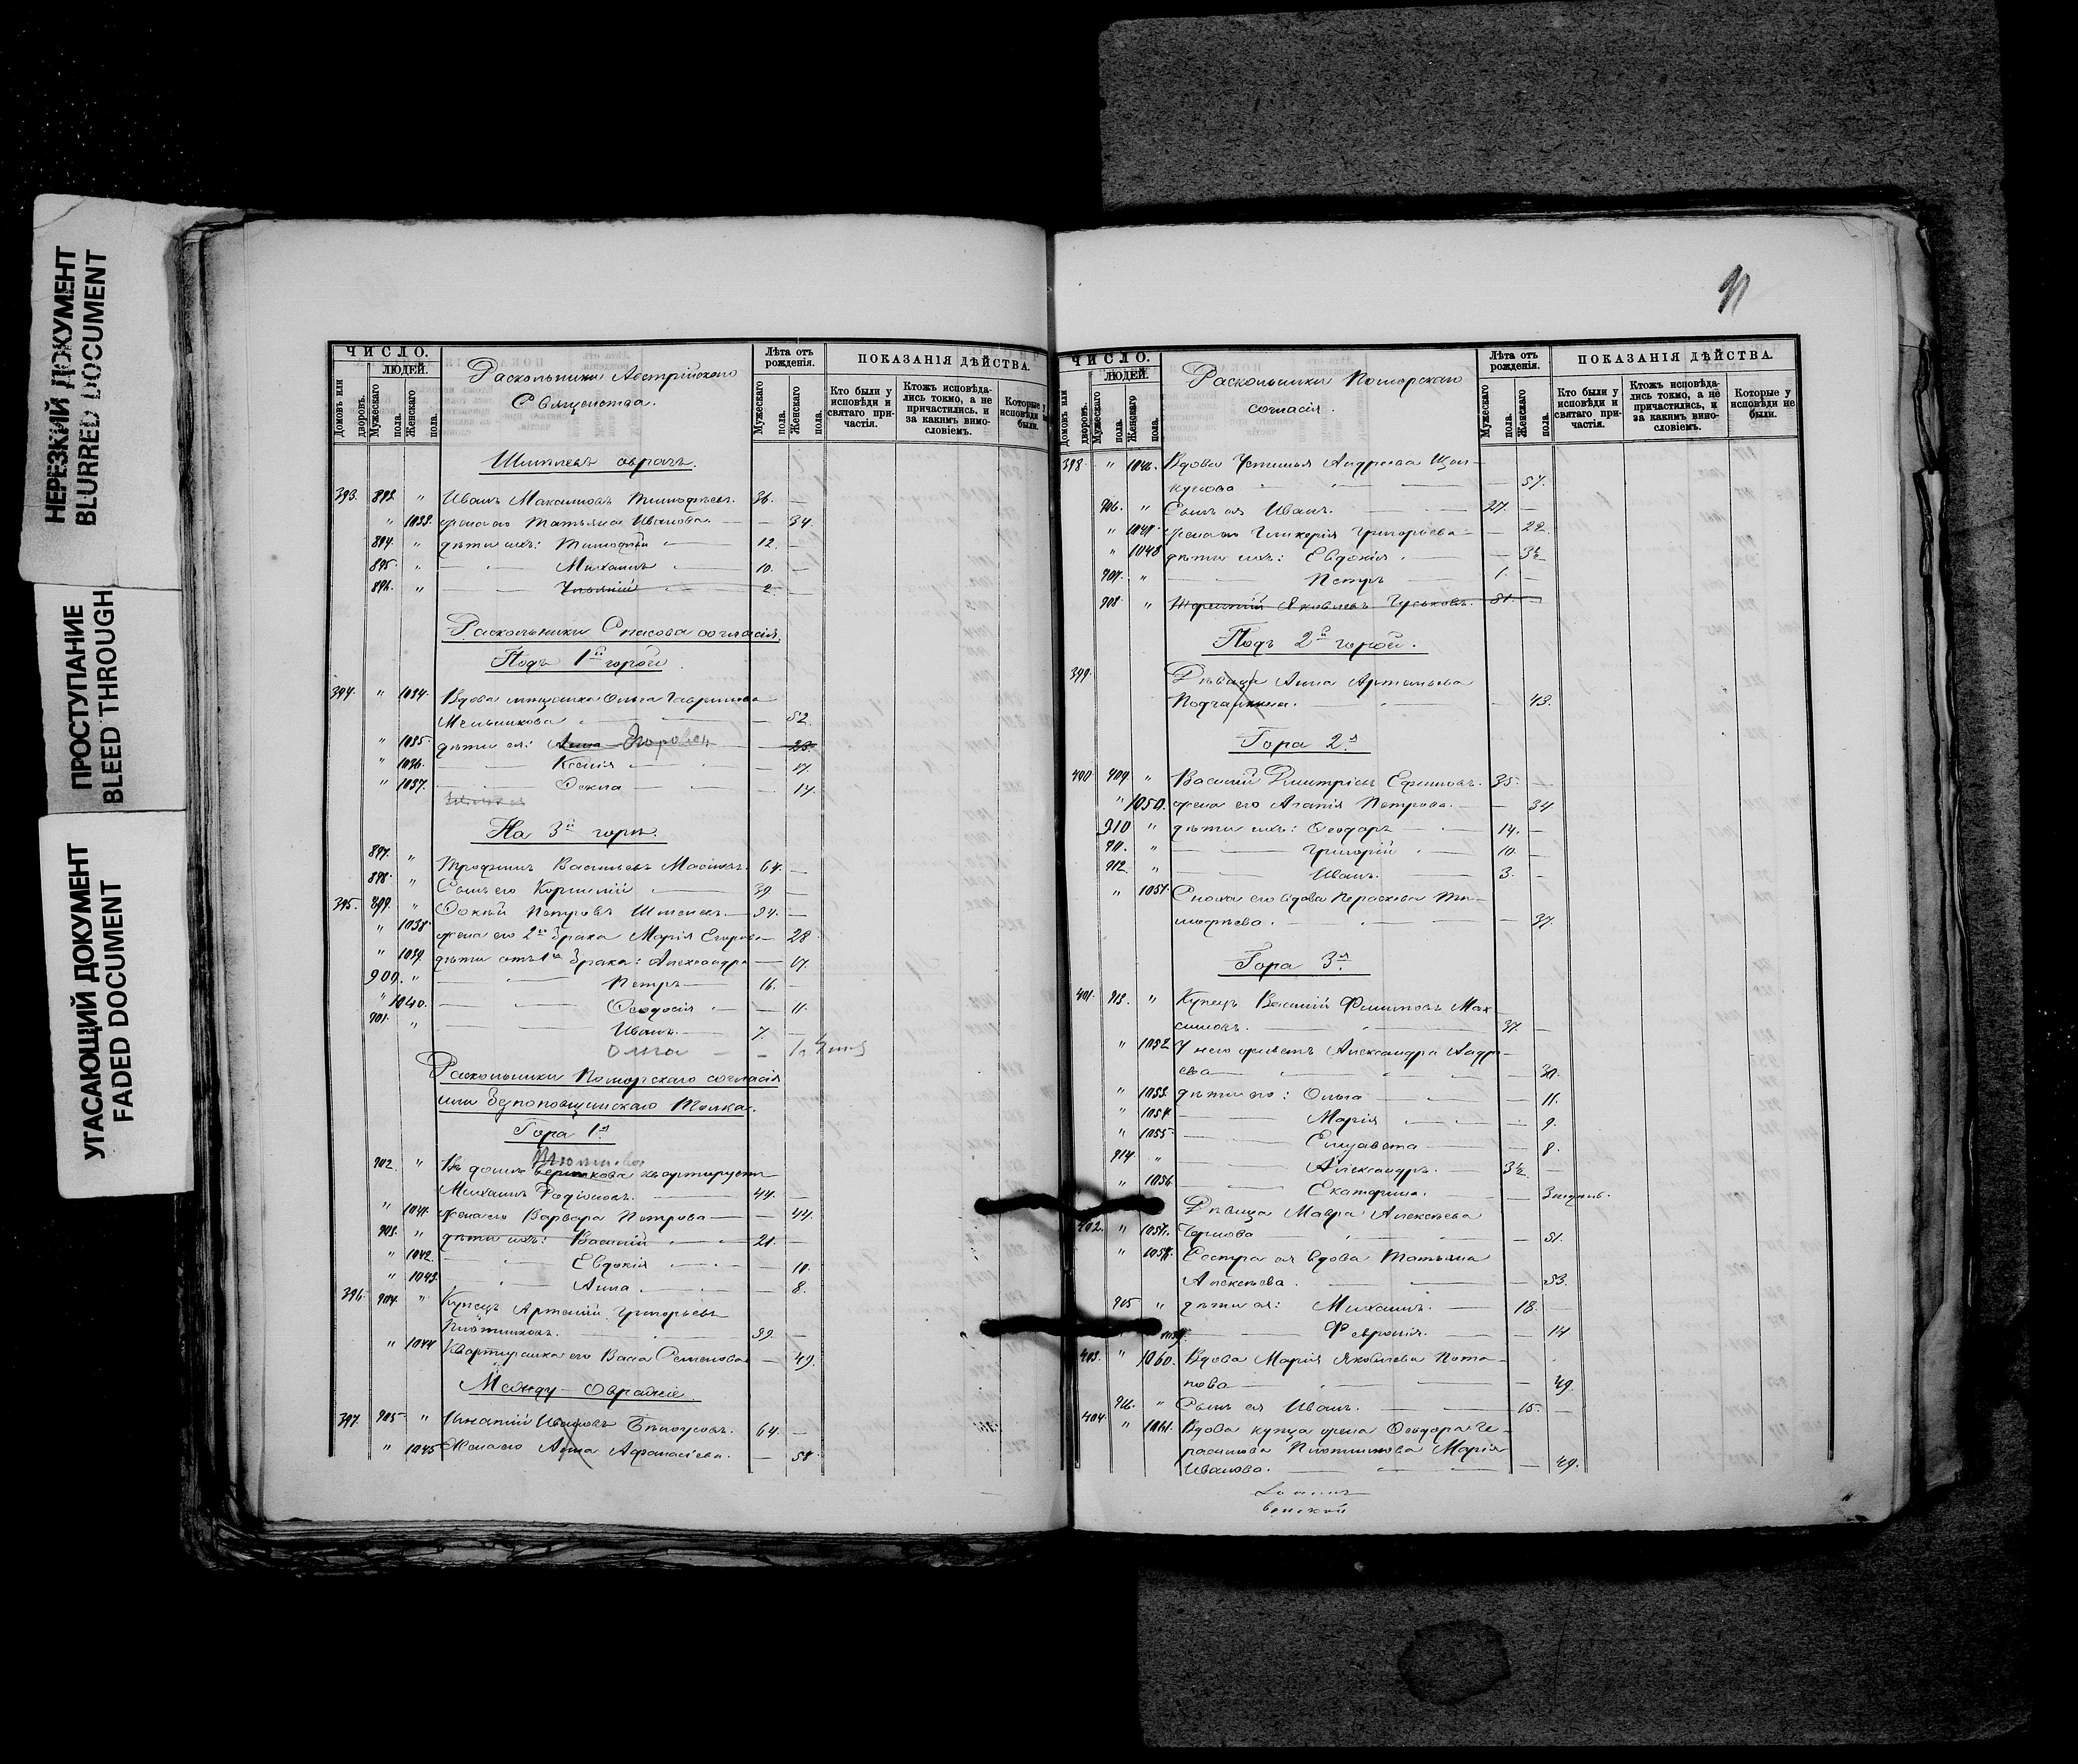 НЕРЕЗКИЙ ДОКУМЕНТ
BLURRED DOCUMENT
ПРОСТУПАНИЕ
BLEED THROUGH
УГАСАЮЩИЙ ДОКУМЕНТ
FADED DOCUMENT
ЧИСЛО.
ЛЮДЕЙ.
Домовъ или дворовъ.
Мужескаго пола.
Женскаго пола.
Раскольники Австрійскаго
Священства.
Лѣта отъ рожденія.
Мужескаго пола.
Женскаго пола.
ПОКАЗАНІЯ ДѢЙСТВА.
Кто были у исповѣди и святаго причастія.
Ктожъ исповѣдались токмо, а не причастились, и за какимъ винословіемъ.
Которые у исповѣди не были.
оврагъ.
393. 893. " Иванъ Максимовъ Тимофѣевъ. 36. —
" 1033. жена его Татьяна Иванова. — 34.
894. " дѣти ихъ: Тимофей 12. —
895. " Михаилъ 10. —
896. " 2. —
Раскольники Спасова согласія.
Подъ 1й горой.
394. " 1034. Вдова мѣщанка Ольга Гаврилова
Мельникова — 52.
" 1035. дѣти ея: Анна — 23.
" 1036. Ксенія — 17.
" 1037. Ѳекла — 14.
На 3й горѣ.
897. " Трофимъ Васильевъ 64. —
898. " Сынъ его Корнилій 39 —
395. 899. " Петровъ 34. —
" 1038. жена его 2го брака Марія Егорова 28
" 1039. дѣти отъ 1го брака: Александра — 17.
900. " Петръ 16.
" 1040. Ѳеодосія — 11.
901. " Иванъ. 7.
Ольга
Раскольники Поморскаго согласія
или безпоповщинскаго толка.
Гора 1я.
902. " Въ домѣ квартируетъ
Михаилъ Родіоновъ. 44. —
" 1041. жена его Варвара Петрова — 44.
903. " дѣти ихъ: Василій 21. —
" 1042. Евдокія — 10.
" 1043. Анна — 8.
396. 904. " Купецъ Артемій Григорьевъ
Плотниковъ. 59. —
" 1044 Квартирантка его Васса Семенова — 49.
Между-овражіе.
397. 905. " Игнатій Ивановъ Бѣлоусовъ. 64. —
" 1045 Жена его Анна Афанасіева. — 58.
ЧИСЛО.
ЛЮДЕЙ.
Домовъ или дворовъ.
Мужескаго пола.
Женскаго пола.
Раскольники Поморскаго
согласія.
Лѣта отъ рожденія.
Мужескаго пола.
Женскаго пола.
ПОКАЗАНІЯ ДѢЙСТВА.
Кто были у исповѣди и святаго причастія.
Ктожъ исповѣдались токмо, а не причастились, и за какимъ винословіемъ.
Которые у исповѣди не были.
398. " 1046. Вдова Устинья Андреева
— 57.
906. " Сынъ ея Иванъ. 27. —
" 1047. жена его Гликерія Григорьева — 22.
" 1048 дѣти ихъ: Евдокія — 3½
907. " Петръ 1. —
908. " Яковлевъ Гуськовъ. 81. —
Подъ 2й горой.
399. Дѣвица Анна Артемьева
— 43.
Гора 2я.
400 909. " Василій Дмитріевъ Ефимовъ. 35. —
" 1050. жена его Агапія Петрова. — 34
910 " дѣти ихъ: Ѳеодоръ 14. —
911. " Григорій 10. —
912. " Иванъ. 3. —
" 1051. Сноха его вдова Параскева Ти-
мофѣева. — 37.
Гора 3я.
401. 913. " Купецъ Василій Филиповъ Мак-
симовъ. 37. —
" 1052 У него живетъ Александра Андре-
ева — 30.
" 1053. дѣти его: Ольга — 11.
" 1054. Марія — 9.
" 1055. Елизавета — 8.
914. " Александръ. 3½ —
" 1056. Екатерина. —
Дѣвица Мавра Алексѣева
402. " 1057. Чернова — 51.
" 1058. Сестра ея вдова Татьяна
Алексѣева. — 53.
915 " дѣти ея: Михаилъ. 18. —
1059. Февронія. — 14
403. " 1060. Вдова Марія Яковлева Пота-
пова — 49.
916. " Сынъ ея Иванъ. 15. —
404. " 1061. Вдова купца жена Ѳеодора Ге-
расимова Плотникова Марія
Иванова. — 49.